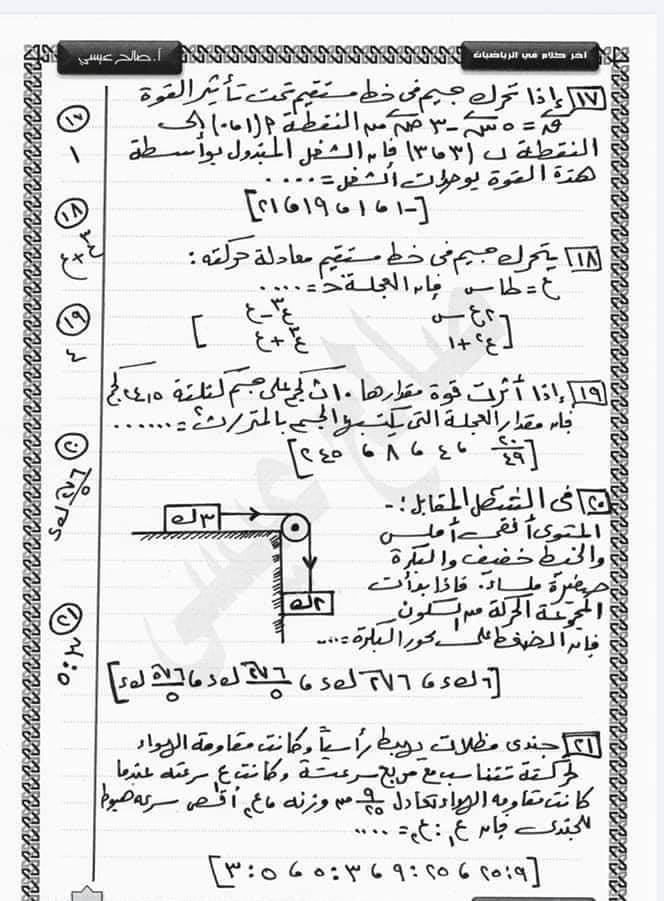 أ. صالح عيسى
آخر كلام في الرياضيات
١٧ إذا تحرك جسم فى خط مستقيم تحت تأثير القوة
ق = ٥ س - ٣ ص من النقطة م (١ ، ٠) إلى
النقطة ب (٣ ، ٣) فإن الشغل المبذول بواسطة
هذة القوة بوحدات الشغل = ....
[-١ ، ١ ، ١٩ ، ٢١]
١٨ يتحرك جسم فى خط مستقيم معادلة حركته :
ع = طا س فإن العجلة حـ = ....
[ ٢ ع س ع٣ - ع
ع٢ + ١ ع٣ + ع ]
١٩ إذا أثرت قوة مقدارها ١٠ ث كجم على جسم كتلته ٢٤,٥ كجم
فإن مقدار العجلة التى يكتسبها الجسم بالمتر/ث٢ = ......
[٢٠/٤٩ ، ٤ ، ٨ ، ٢٤٥]
٢٠ فى الشكل المقابل :-
المستوى أفقى أملس
والخيط خفيف والبكرة
صغيرة ملساء. فإذا بدأت
المجموعة الحركة من السكون
فإن الضغط على محور البكرة = ....
٣ ك
٢ ك
[٦ ك د ، ٦√٢ ك د ، ٦√٢/٥ ك د ، ٦√٥/٥ ك د]
٢١ جندى مظلات يهبط رأسياً وكانت مقاومة الهواء
لحركته تتناسب مع مربع سرعته وكانت ع١ سرعته عندما
كانت مقاومة الهواء تعادل ٩/٢٥ من وزنه ، ع٢ أقصى سرعة هبوط
للجندى فإن ع١ : ع٢ = ....
[٩ : ٢٥ ، ٢٥ : ٩ ، ٣ : ٥ ، ٥ : ٣]
١٧
١
١٨
ع٣ + ع
١٩
٤
٢٠
٦√٢/٥ ك د
٢١
٣ : ٥
صالح عيسى